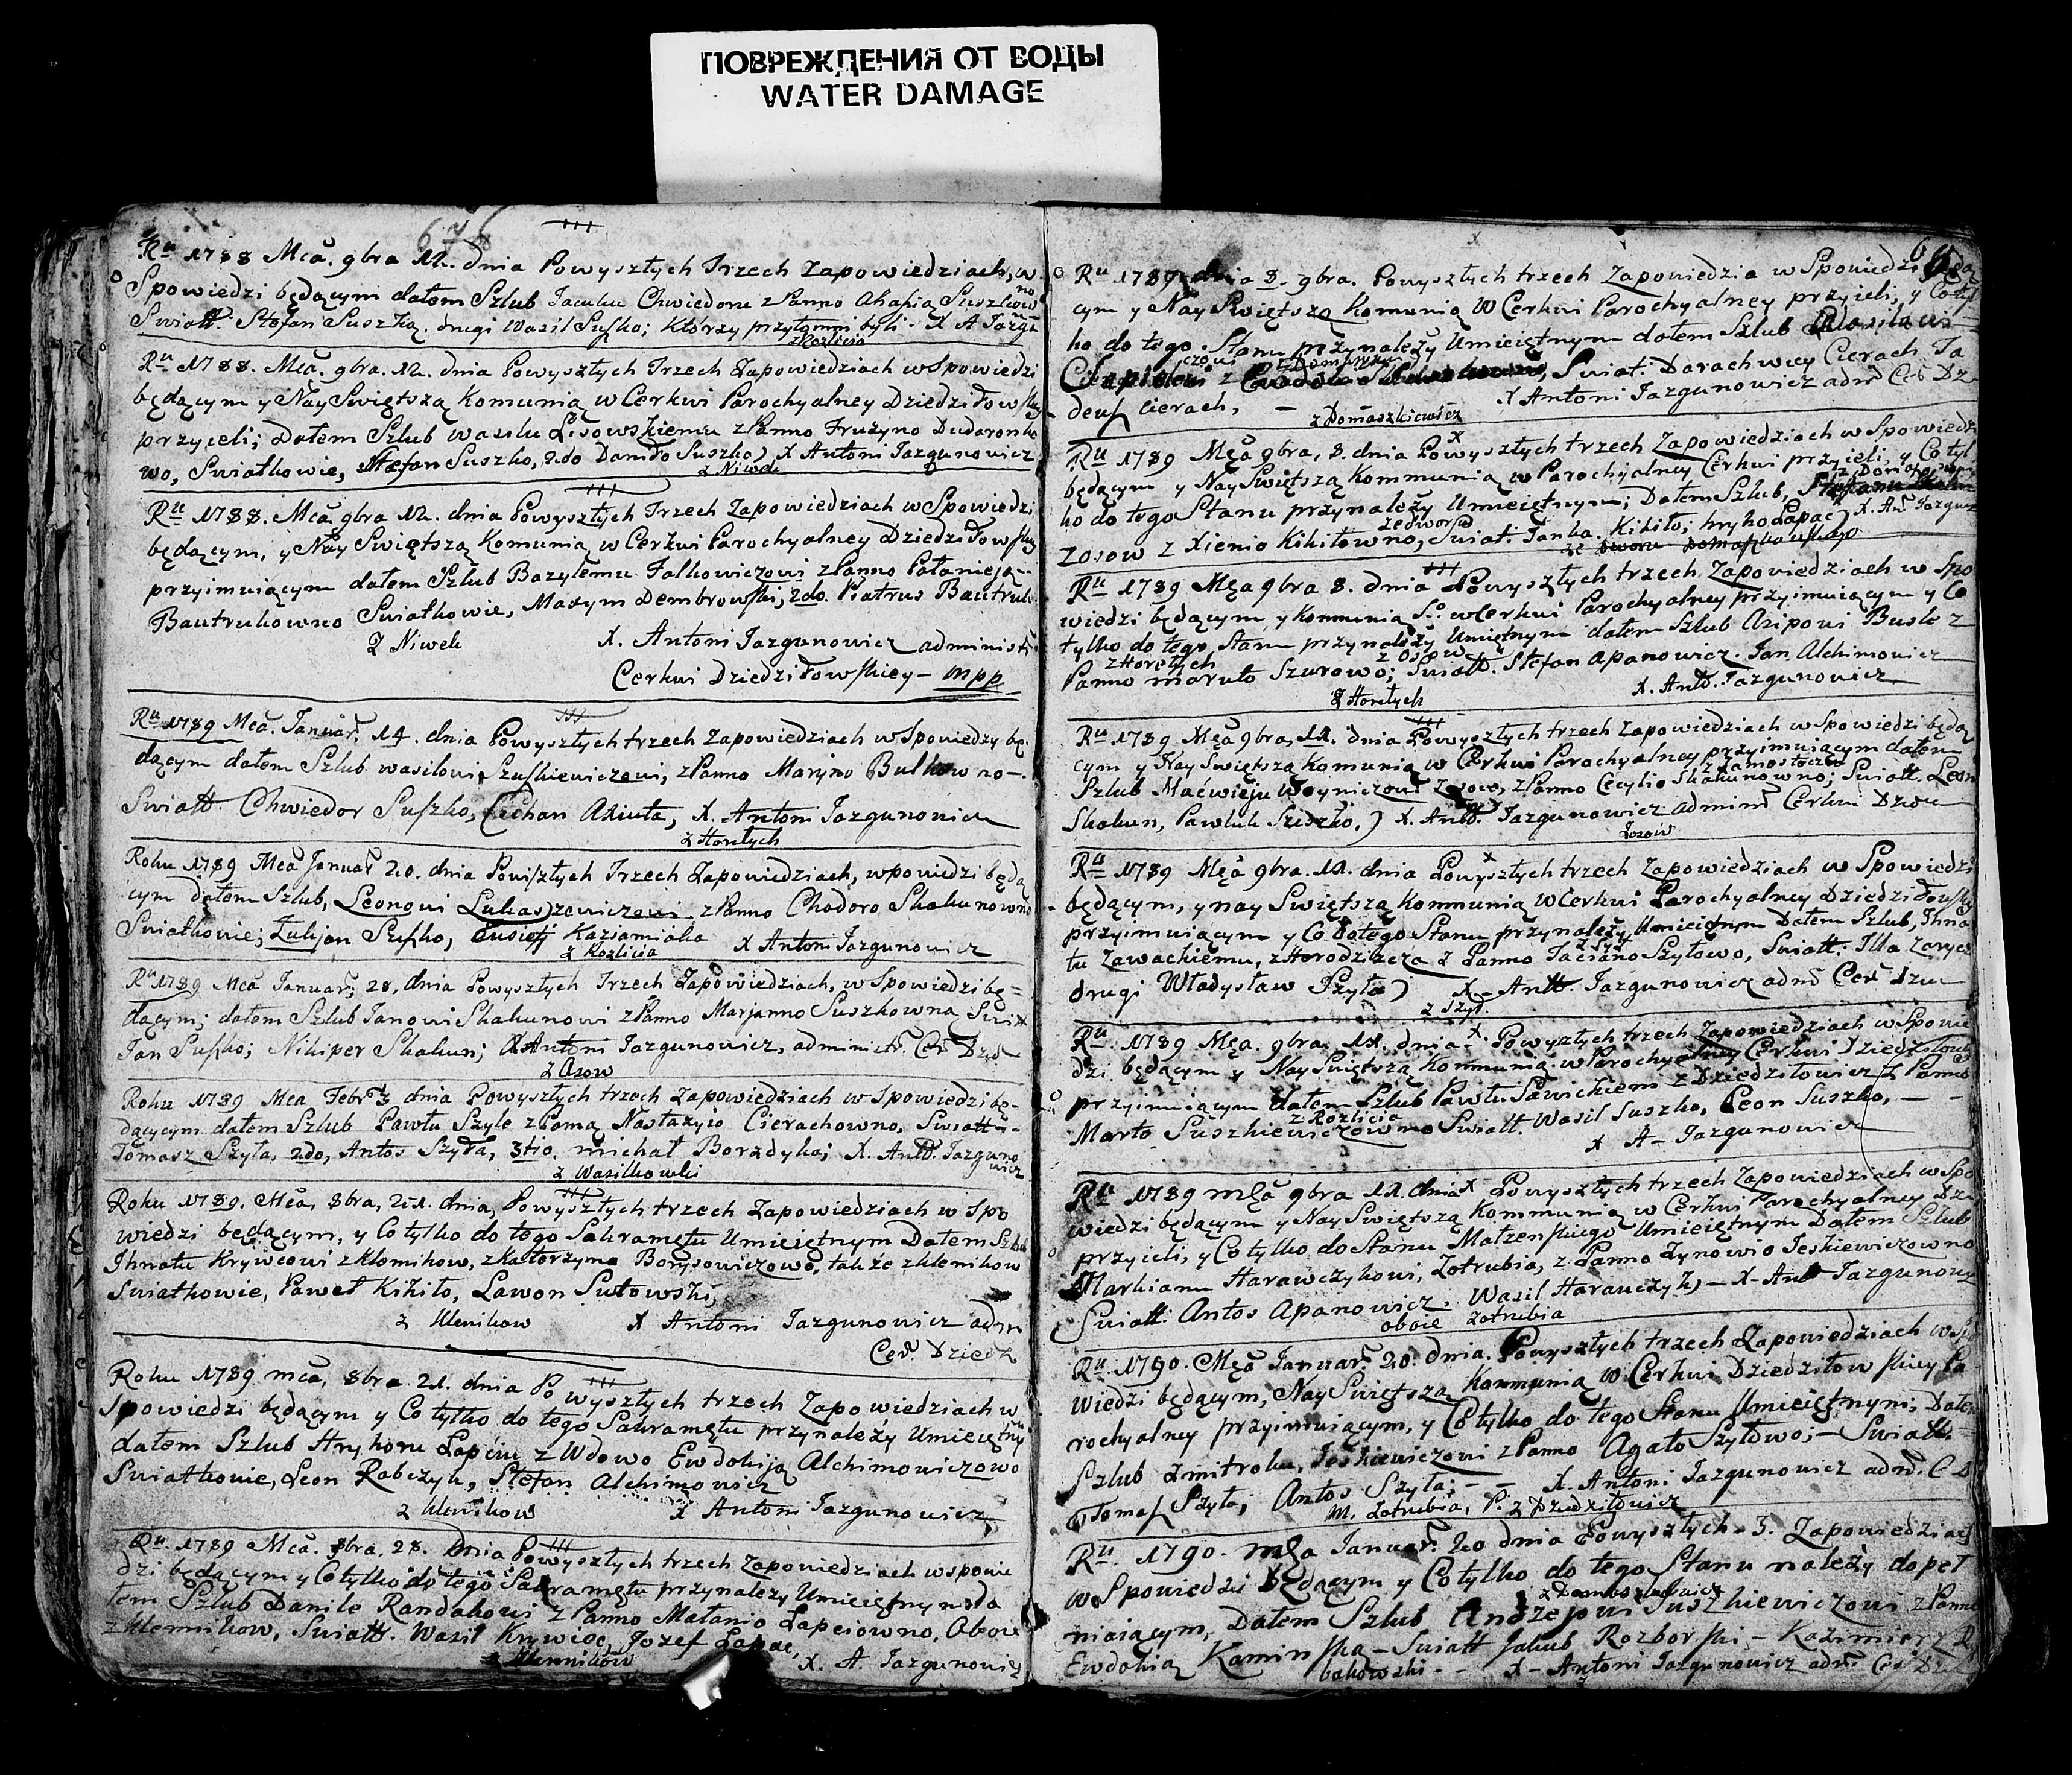 ПОВРЕЖДЕНИЯ ОТ ВОДЫ
WATER DAMAGE
676
Ru 1788 Mca. 9bra 12. dnia Powyszłych Trzech Zapowiedziach, w
Spowiedzi będącym dałem Szlub Jacuku Chwiedoru z Panno Ahafią Suszkow
no
Swiatt. Stefan Suszka. drugi Wasil Suszko; Którzy przytomni byli - X A Jazgu
z Rozlicia
Ru 1788. Mca. 9bra. 12. dnia Powyszłych Trzech Zapowiedziach w Spowiedzi
będącym y Nay Swiętszą Komunią w Cerkwi Parochyalney Dziedziłow
przyieli; Dałem Szlub Wasilu Lisowskiemu z Panno Fruzyno Dudaronko
wo, Swiatkowie, Stefan Suszko, 2do Daniło Suszko) X Antoni Jazgunowicz
z Niwek
Ru 1788. Mca. 9bra 12. dnia Powyszłych Trzech Zapowiedziach w Spowiedzi
będącym, y Nay Swiętszą Komunią w Cerkwi Parochyalney Dziedziłow
przyimuiącym dałem Szlub Bazylemu Falkowiczowi z Panno Połanieją
Bautrukowno Swiatkowie, Maxym Dembrowski, 2do. Piatrus Bautruk
z Niwek X. Antoni Jazgunowicz administ
Cerkwi Dziedziłowskiey - mpp
Ru 1789 Mca. Januar. 14. dnia Powyszłych trzech Zapowiedziach w Spowiedzy bę
dącym dałem Szlub Wasilowi Szuszkiewiczowi, z Panno Maryno Bulkowno -
Swiatt Chwiedor Suszko, Cichan Axiuta, X. Antoni Jazgunowicz
z Horełych
Roku 1789 Mca Januar 20. dnia Powiszłych Trzech Zapowiedziach, w powiedzi będą
cym dałem Szlub, Leonowi Lukaszewiczowi z Panno Chodoro Skakunowno
Swiatkowie; Łukjan Suszko, Eusieij Kaziamiaka X Antoni Jazgunowicz
z Rozlicia
Ru 1789 Mca Januar; 28. dnia Powyszłych Trzech Zapowiedziach, w Spowiedzi bę=
dącym; dałem Szlub Janowi Skakunowi z Panno Marjanno Suszkowną Swiatt
Jan Suszko; Nikiper Skakun; X Antoni Jazgunowicz, administr. Cer Dzied
z Osow
Roku 1789 Mca Febr 3 dnia Powyszłych trzech Zapowiedziach w Spowiedzi bę-
dącym dałem Szlub Pawłu Szyle z Panną Nastazyio Cierachowno, Swiatt-
Tomasz Szyła, 2do, Antos Szyła, 3tio, michał Borzdyka; X. Antt. Jazguno
wicz
z Wasilkowki
Roku 1789. Mca, 8bra, 21. dnia, Powyszłych trzech Zapowiedziach w Spo
wiedzi będącym, y Co tylko do tego Sakramętu Umieiętnym Dałem Szlub
Ihnatu Krywcowi z Klemikow, z Katarzyna Borysowiczowo, także z Klenikow
Swiatkowie, Paweł Kikiło, Lawon Sutowski,
z Klenikow X Antoni Jazgunowicz adm
Cer. Dziedz
Roku 1789 mca, 8bra 21. dnia Powyszłych trzech Zapowiedziach w
Spowiedzi będącym y Co tylko do tego Sakramętu przynależy Umieiętny
dałem Szlub Hryhoru Łapciu z Wdowo Ewdokiją Alchimowiczowo
Swiatkowie, Leon Rabczyk, Stefan Alchimowicz
z Klenikow X Antoni Jazgunowicz
Ru. 1789 Mca. 8bra, 28. Dnia Powyszłych trzech Zapowiedziach w spowie
dzi będącym y Co tylko do tego Sakramętu przynależy Umieiętnym da
łem Szlub Danile Randakowi z Panno Małanio Łapciowno, Oboie
z Klennikow, Swiatt. Wasil Krywiec, Jozef Łapac,
z Klennikow X. A. Jazgunowicz
Ru 1789 dnia 8. 9bra. Powyszłych trzech Zapowiedzia w Spowiedzi będą
cym y Nay Swiętszą Komunią w Cerkwi Parochyalney przyieli, y Co tyl
ho do tego Stanu przynależy Umieiętnym dałem Szlub
Swiat. Darachwiey Cierach. Ta
deusz Cierach, - X Antoni Jazgunowicz adm Cer Dz
z Domaszkiewicz
Ru 1789 Mca 9bra, 8. dnia Powyszłych trzech Zapowiedziach w Spowiedzi
będącym y Nay Swiętszą Kommunią w Parochyalney Cerkwi przyieli, y Co tyl
ho do tego Stanu przynależy Umieiętnym; Dałem Szlub,
zosow z Xienio Kikiłowno, Swiat. Janka, Kikiło; hryho Łapac) X. An Jazgun
ze dwora
Ru 1789 Mca 9bra 8. dnia Powyszłych trzech Zapowiedziach w Spo
wiedzi będącym y Kommunią S. w Cerkwi Parochyalney przyimuiącym y Co
tylko do tego Stanu przynależy Umiętnym dałem Szlub Osipowi Busle z
z Horełych z Osow
Panno maruło Szurowo; Swiatt. Stefan Apanowicz. Jan Alchimowicz
z Horełych X. Antt. Jazgunowicz
Ru 1789 Mca 9bra, 12. dnia Powyszłych trzech Zapowiedziach w Spowiedzi będą
cym y Nay Swiętszą Komunią w Cerkwi Parochyalney przyimuiącym dałem
z Zamostocza
Szlub Maćwieju Woyniczowi z Osow, z Panno Cecylio Skakunowno; Swiatt. Leon
Skakun, Pawluk Szuszko.) X. Antt. Jazgunowicz admind Cerkwi Dzied
Zosow
Ru 1789 Mca 9bra. 12. dnia Powyszłych trzech Zapowiedziach w Spowiedzi
będącym, y nay Swiętszą Kommunią w Cerkwi Parochyalney Dziedziłow
przyimuiącym y Co do tego Stanu przynależy Umieiętnym Dałem Szlub, Ihna
z Szył
tu Zawackiemu, z Horodziszcza z Panno Taciano Szyłowo, Swiatt. Illa Zarycz
drugi Władysław Szyła) X. Antt. Jazgunowicz adm Cer dzie
z Szył.
Ru 1789 Mca. 9bra. 12. dnia Powyszłych trzech Zapowiedziach w Spowie
dzi będącym y Nay Swiętszą Kommunią w Parochyalney Cerkwi Dziedziłow
przyimuiącym dałem Szlub Pawłu Sawickiem z Dziedziłowicz z Panno
z Rozlicia
Marto Suszkiewiczowno Swiatt. Wasil Suszko, Leon Suszko, -
X A- Jazgunowicz
Ru 1789 mca 9bra 12. dnia Powyszłych trzech Zapowiedziach w Spo
wiedzi będącym y Nay Swiętszą Kommunią w Cerkwi Parochyalney Dzi
przyieli, y Co tylko do Stanu Małzenskiego Umieiętnym Dałem Szlub
Markianu Harawczykowi, Zotrubia, z Panno Zynowio Jeskiewiczowno
Swiatt. Antos Apanowicz. Wasil Harauczyk) - X- Ant Jazgunowi
oboie zotrubia
Ru 1790. Mca Januar. 20. dnia. Powyszłych trzech Zapowiedziach w Spo
wiedzi będącym, Nay Swiętszą Kommunią w Cerkwi Dziedziłowskiey Pa
rochyalney przyimuiącym, y Co tylko do tego Stanu Umieiętnym; Dałem
Szlub Zmitroku, Jeskiewiczowi z Panno Agato Szyłowo; - Swiatt.
Tomasz Szyła, Antos Szyła; - X. Antoni Jazgunowicz adm. C D
M. Zotrubia, P. z Dziedziłowicz
Ru 1790. mca Januar. 20 dnia Powyszłych 3. Zapowiedziach
w Spowiedzi będącym y Co tylko do tego Stanu należy dopeł
niaiącym, Dałem Szlub Andrzejowi Suszkiewiczowi z Panno
Ewdokią Kaminską - Swiatt Jakub Rozborski - Kazimierz R
bakowski - - X - Antoni Jazgunowicz adm. Cer Dz